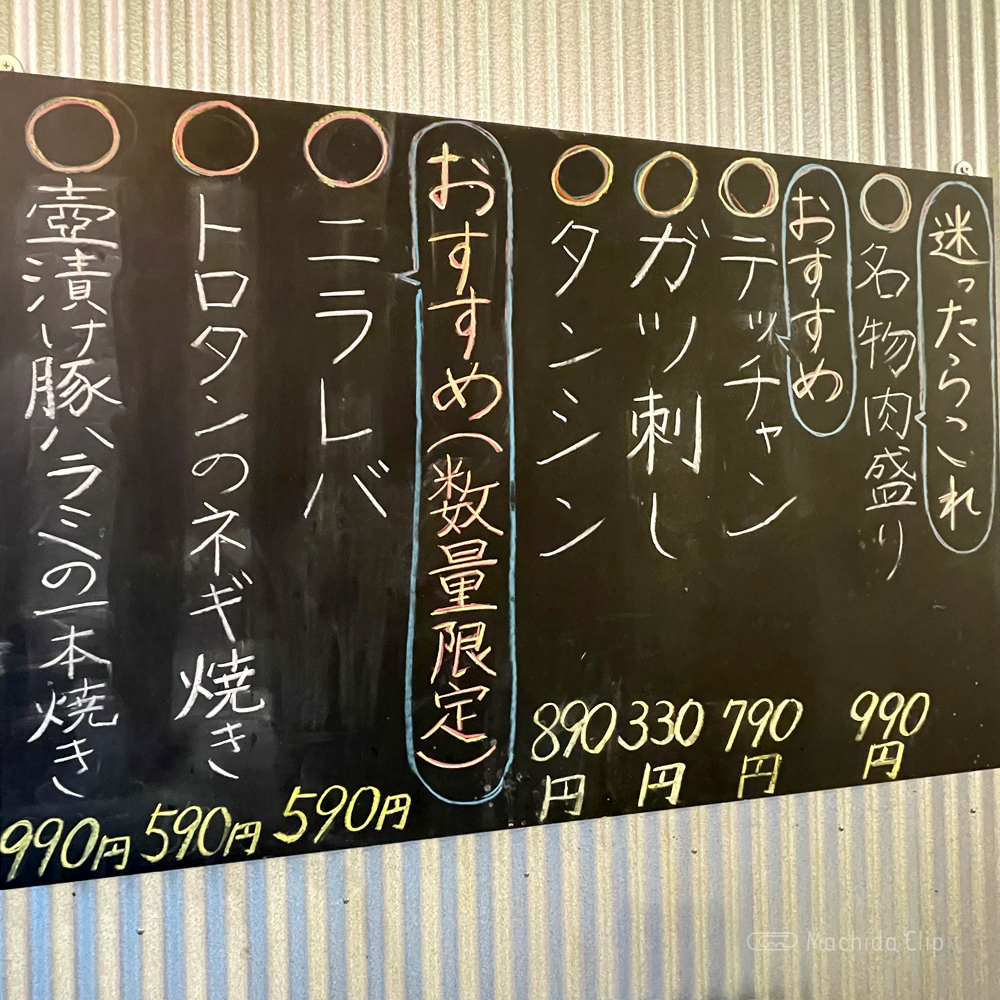 迷ったらこれ
○名物肉盛り 990円
おすすめ
○テッチャン 790円
○ガツ刺し 330円
○タンシン 890円
おすすめ(数量限定)
○ニラレバ 590円
○トロタンのネギ焼き 590円
○壺漬け豚ハラミの一本焼き 990円
Machida Clip